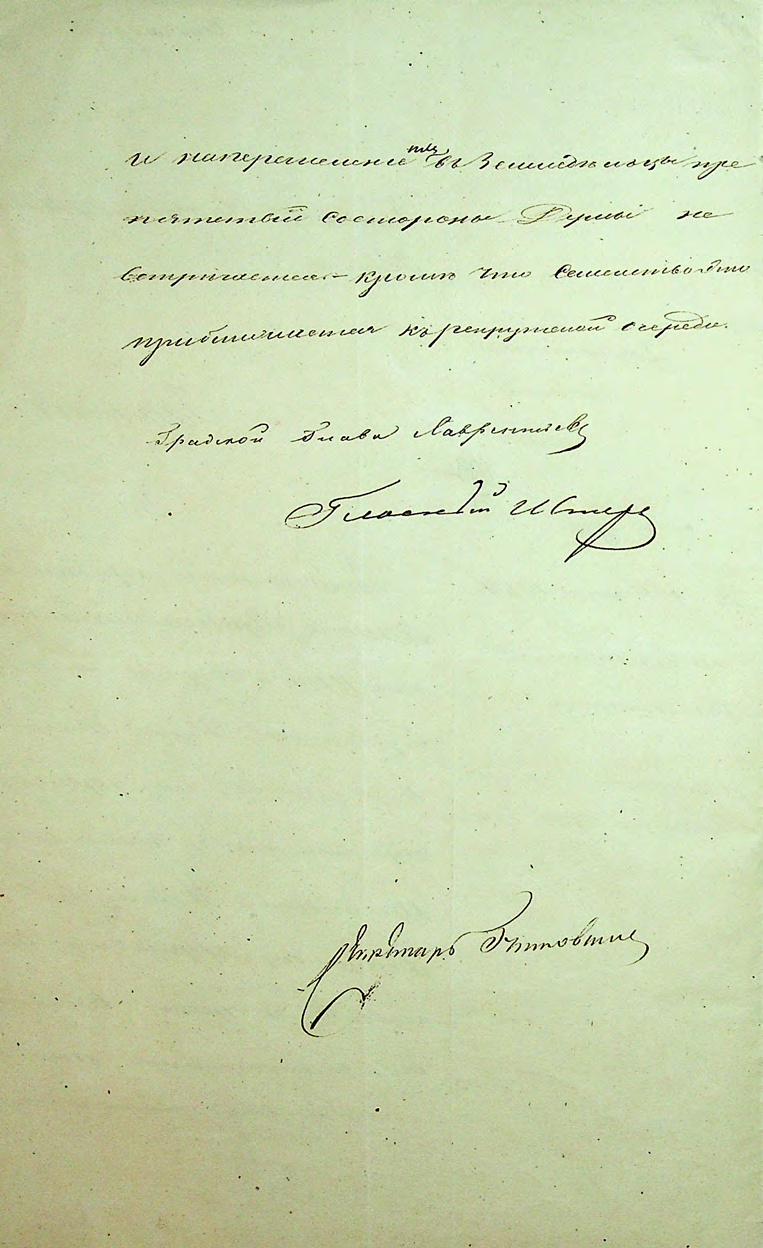 и наперечисление въ Земледѣльцы пре
пятствій состороны Думы не
встрѣчается – кромѣ что Семейство это
приближается къ рекрутской очереди.
Градской Глава Лаврентьевъ
Гласный
Секретарь